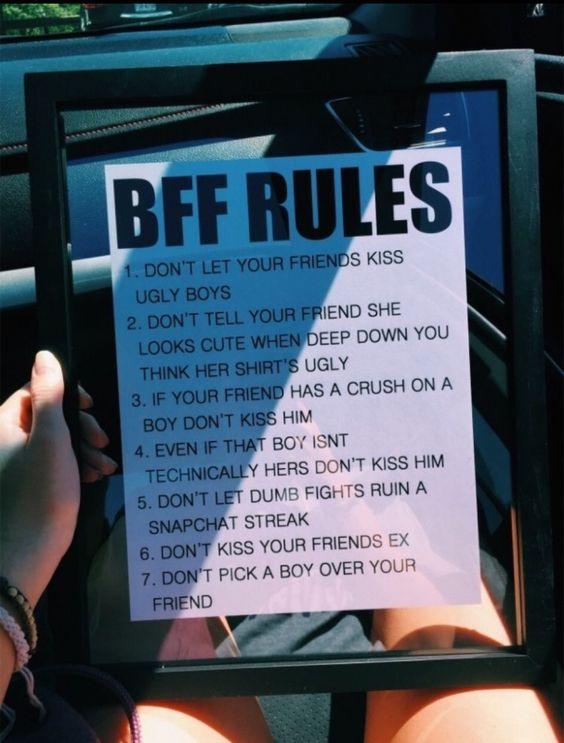 BFF RULES
1. DON'T LET YOUR FRIENDS KISS
UGLY BOYS
2. DON'T TELL YOUR FRIEND SHE
LOOKS CUTE WHEN DEEP DOWN YOU
THINK HER SHIRT'S UGLY
3. IF YOUR FRIEND HAS A CRUSH ON A
BOY DON'T KISS HIM
4. EVEN IF THAT BOY ISNT
TECHNICALLY HERS DON'T KISS HIM
5. DON'T LET DUMB FIGHTS RUIN A
SNAPCHAT STREAK
6. DON'T KISS YOUR FRIENDS EX
7. DON'T PICK A BOY OVER YOUR
FRIEND